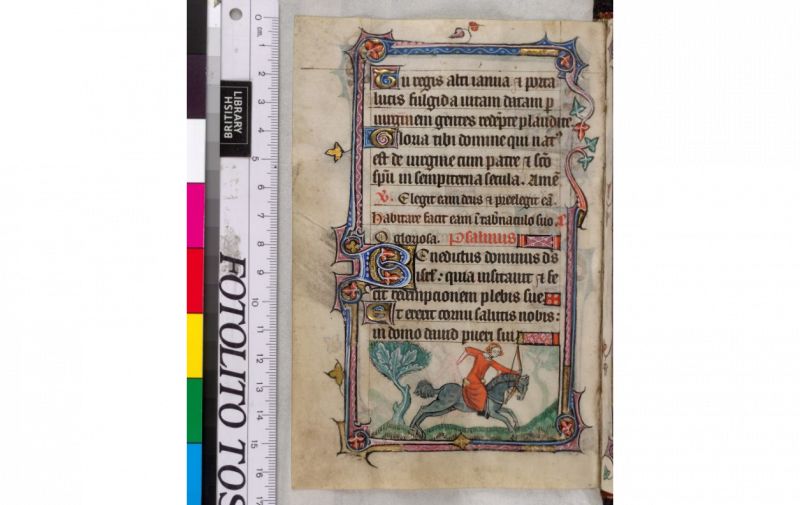 Tu regis alti ianua et porta
lucis fulgida uitam datam p
uirginem gentes redempte plaudite
Gloria tibi domine qui nat9
est de uirgine cum patre et sco
spu in sempiterna secula. Ame
V. Elegit eam deus et preelegit ea.
Habitare facit eam i tabnaculo suo a
O gloriosa. Psalmus
Benedictus dominus ds
isrl: quia uisitauit et fe
cit redempcionem plebis sue
Et erexit cornu salutis nobis:
in domo dauid pueri sui
BRITISH
LIBRARY
FOTOLITO TOS
0
cm
1
2
3
4
5
6
7
8
9
10
11
12
13
14
15
16
17